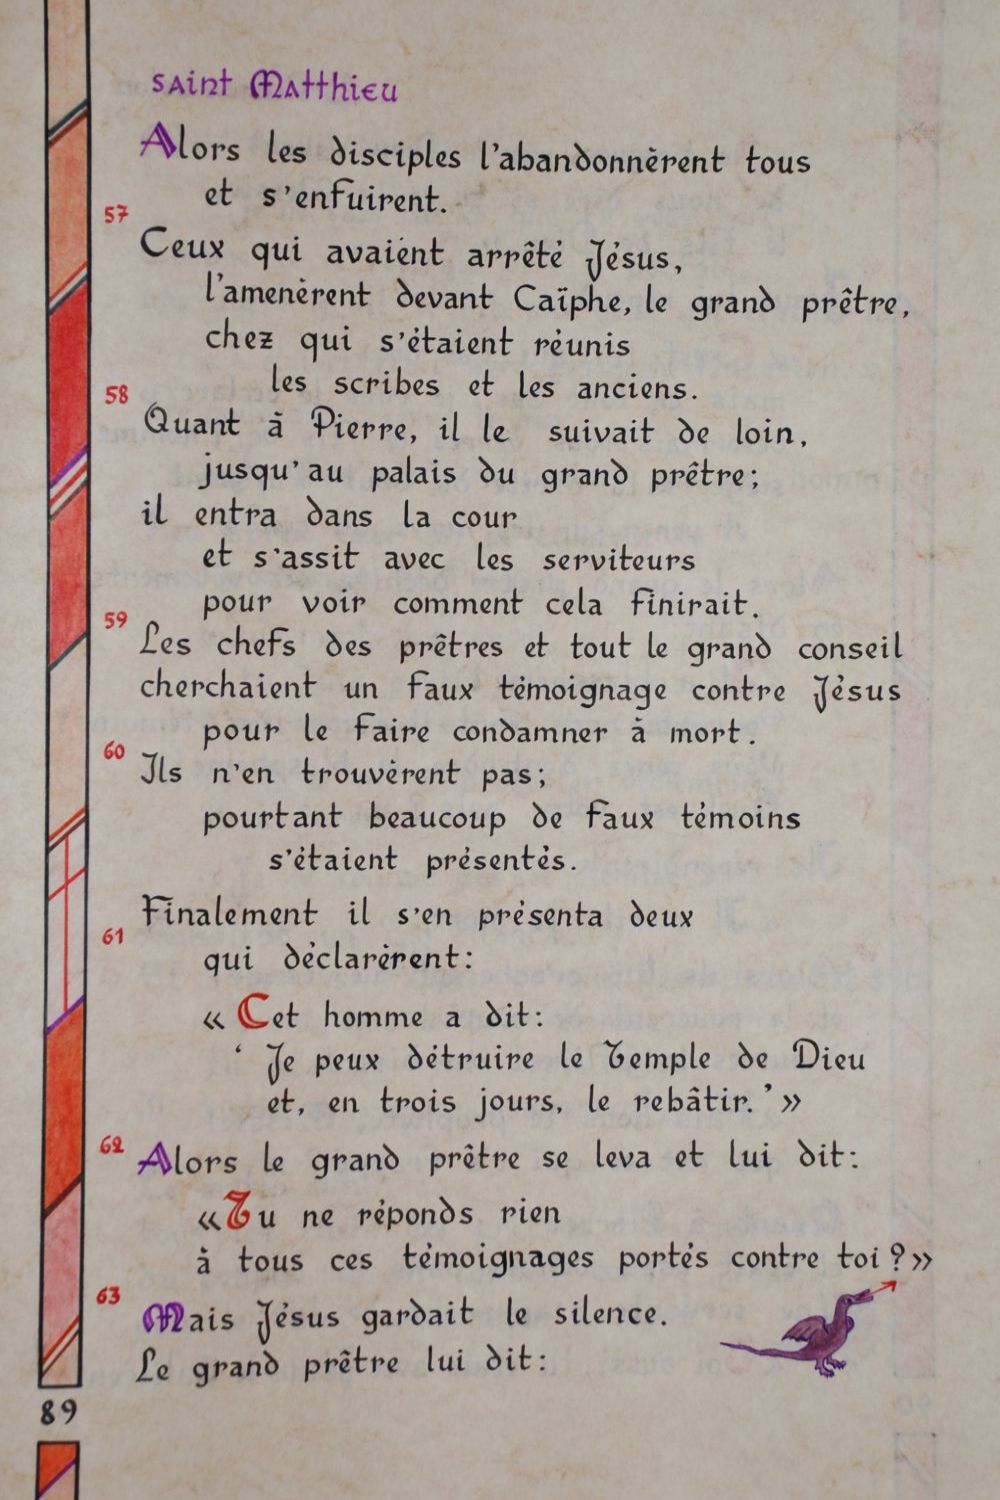 saint Matthieu
Alors les disciples l'abandonnèrent tous
et s'enfuirent.
57
Ceux qui avaient arrêté Jésus,
l'amenèrent devant Caïphe, le grand prêtre,
chez qui s'étaient réunis
les scribes et les anciens.
58
Quant à Pierre, il le suivait de loin,
jusqu'au palais du grand prêtre;
il entra dans la cour
et s'assit avec les serviteurs
pour voir comment cela finirait.
59
Les chefs des prêtres et tout le grand conseil
cherchaient un faux témoignage contre Jésus
pour le faire condamner à mort.
60
Ils n'en trouvèrent pas;
pourtant beaucoup de faux témoins
s'étaient présentés.
Finalement il s'en présenta deux
61
qui déclarèrent:
« Cet homme a dit:
‘ Je peux détruire le Temple de Dieu
et, en trois jours, le rebâtir.’»
62
Alors le grand prêtre se leva et lui dit:
«Tu ne réponds rien
à tous ces témoignages portés contre toi ?»
63
Mais Jésus gardait le silence.
Le grand prêtre lui dit:
89